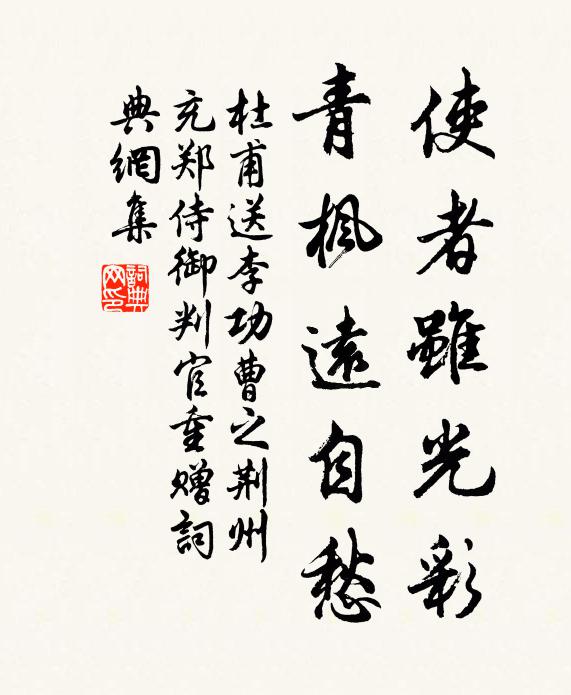 使者雖光彩
青楓遠自愁
杜甫送李功曹之荆州
充郑侍御判官重赠詞
典網集
詞典网印